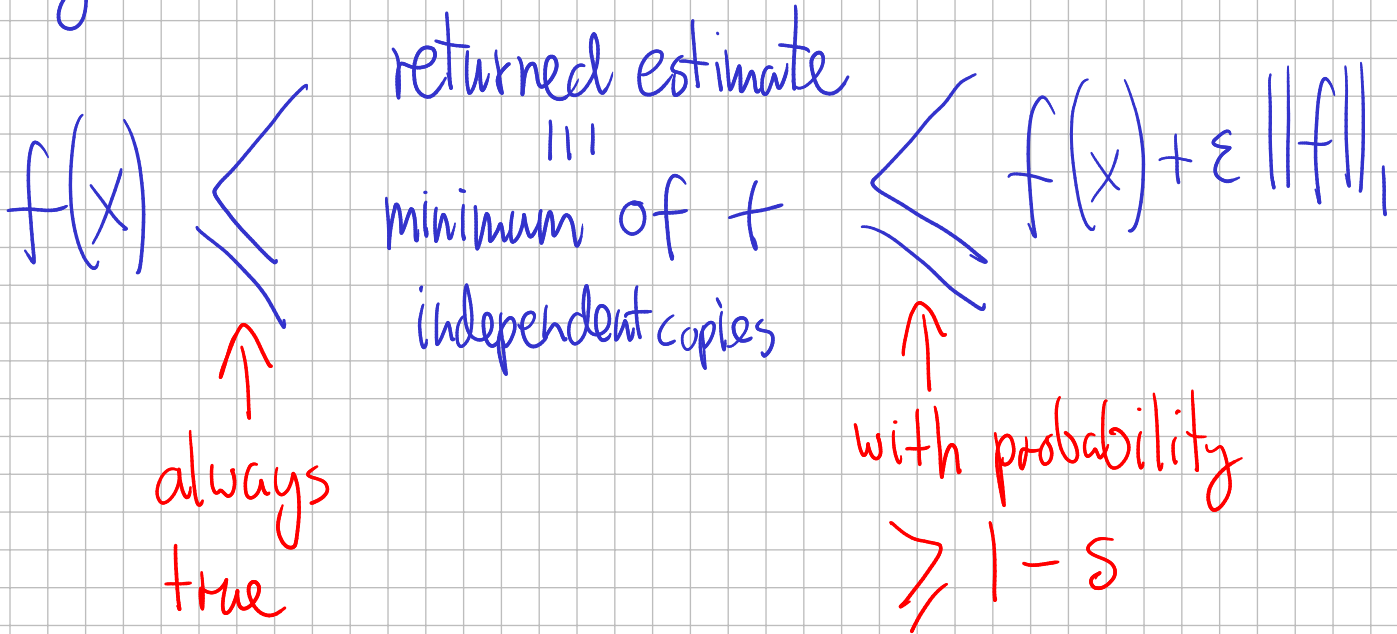 returned estimate
f(x) ≤ ≡ ≤ f(x) + ε ||f||₁
minimum of t
independent copies
always
true
with probability
≥ 1 - δ